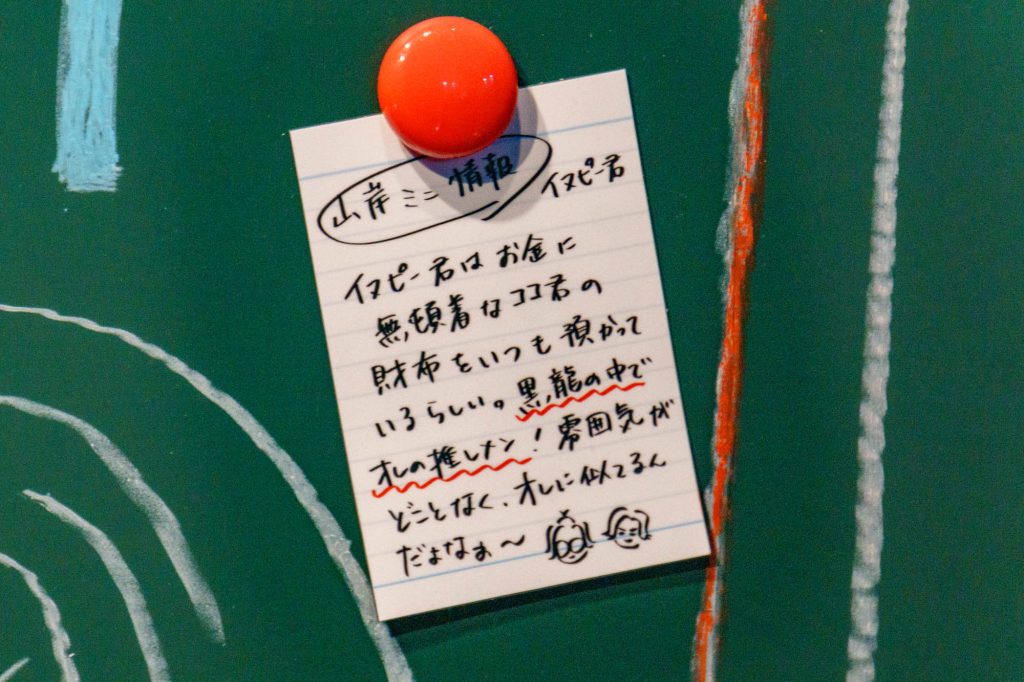 山岸ミニ情報 イヌピー君
イヌピー君はお金に
無頓着なココ君の
財布をいつも預かって
いるらしい。黒龍の中で
オレの推しメン！雰囲気が
どことなく、オレに似てるん
だよなぁ〜